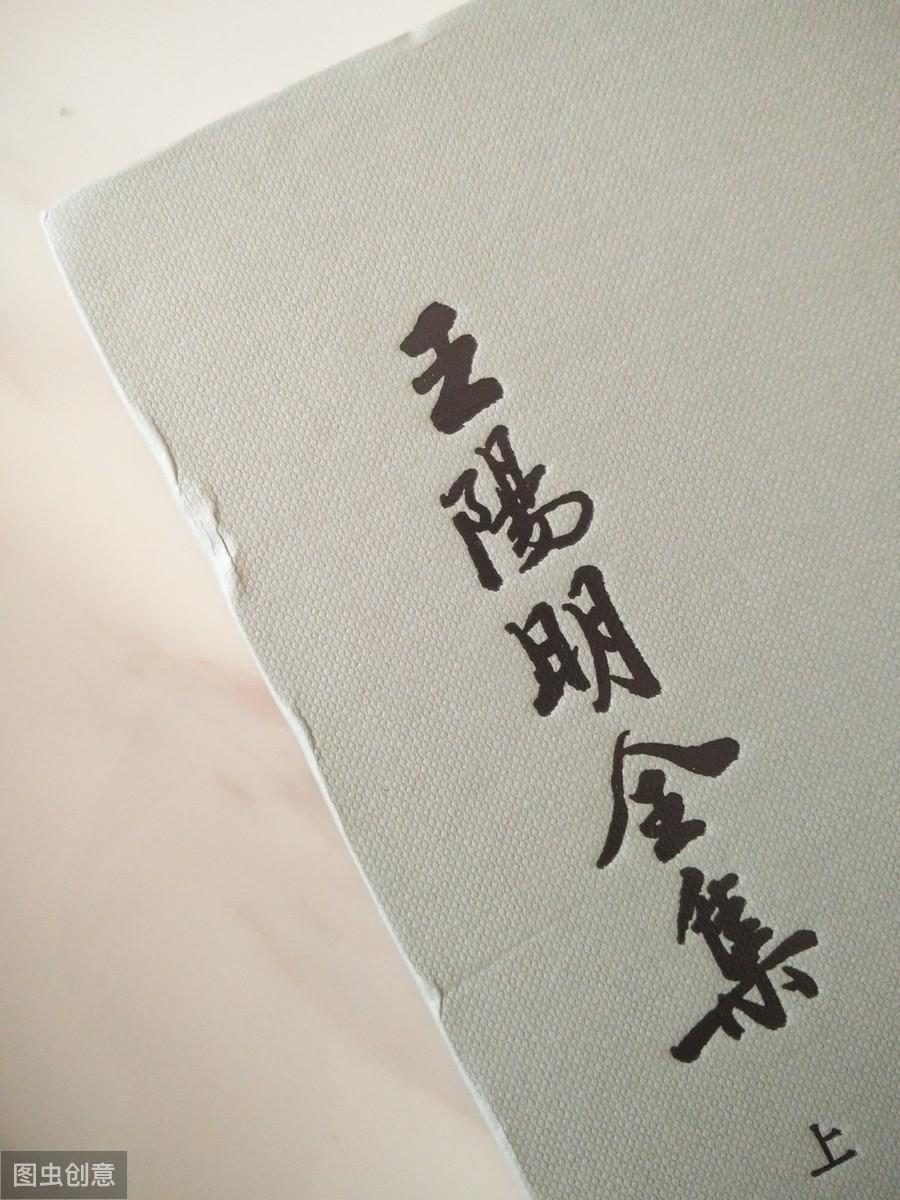 王陽明全集
上
图虫创意